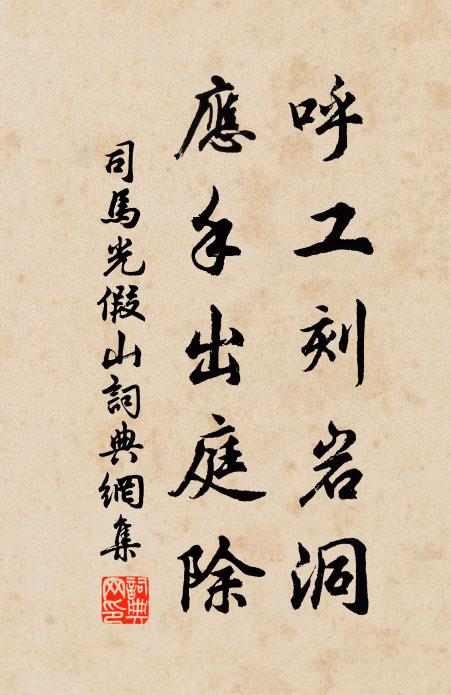 呼工刻岩洞
應手出庭除
司馬光假山詞典網集
詞典網印